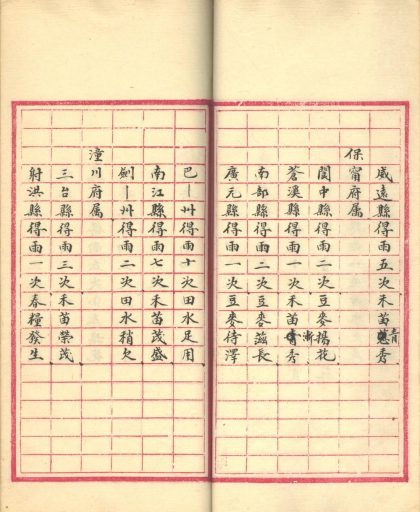 威遠縣得雨五次禾苗青秀
保甯府属
閬中縣得雨二次豆麥揚花
蒼溪縣得雨一次禾苗漸秀
南部縣得雨二次豆麥蓊長
廣元縣得雨一次豆麥待澤
巴丨州得雨十次田水足用
南江縣得雨七次禾苗茂盛
劍丨州得雨二次田水稍欠
潼川府属
三台縣得雨三次禾苗榮茂
射洪縣得雨一次春糧發生